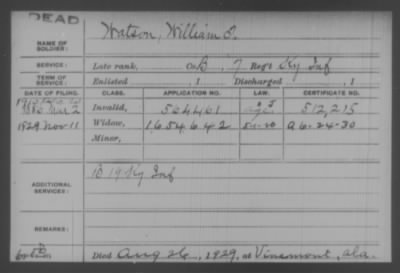 DEAD
NAME OF SOLDIER: Watson, William S.
SERVICE: Late rank, Co. B, 7 Reg't Ky Inf
TERM OF SERVICE: Enlisted , 1 Discharged , 1
DATE OF FILING. CLASS. APPLICATION NO. LAW. CERTIFICATE NO.
Mar 2 Invalid, 504401 512,215
1929 Nov 11 Widow, 1654642 A 6-24-30
Minor,
ADDITIONAL SERVICES: B 19 Ky Inf
REMARKS:
Died Aug 26, 1929, at Vinemont, Ala.